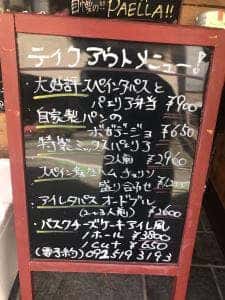 自家製の!! PAELLA!!
テイクアウトメニュー!
・大好評スペインタパスと
パエリア弁当 ¥900
・自家製パンの
ボカディージョ ¥650
・特製ミックスパエリア
2人前 ¥2960
・スペイン産生ハム チョリソ
盛り合わせ
・アイレタパス オードブル
(2〜3人前) ¥2600
・バスクチーズケーキアイレ風
ホール ¥3800
1cut ¥650
(要予約) 092 519 3193